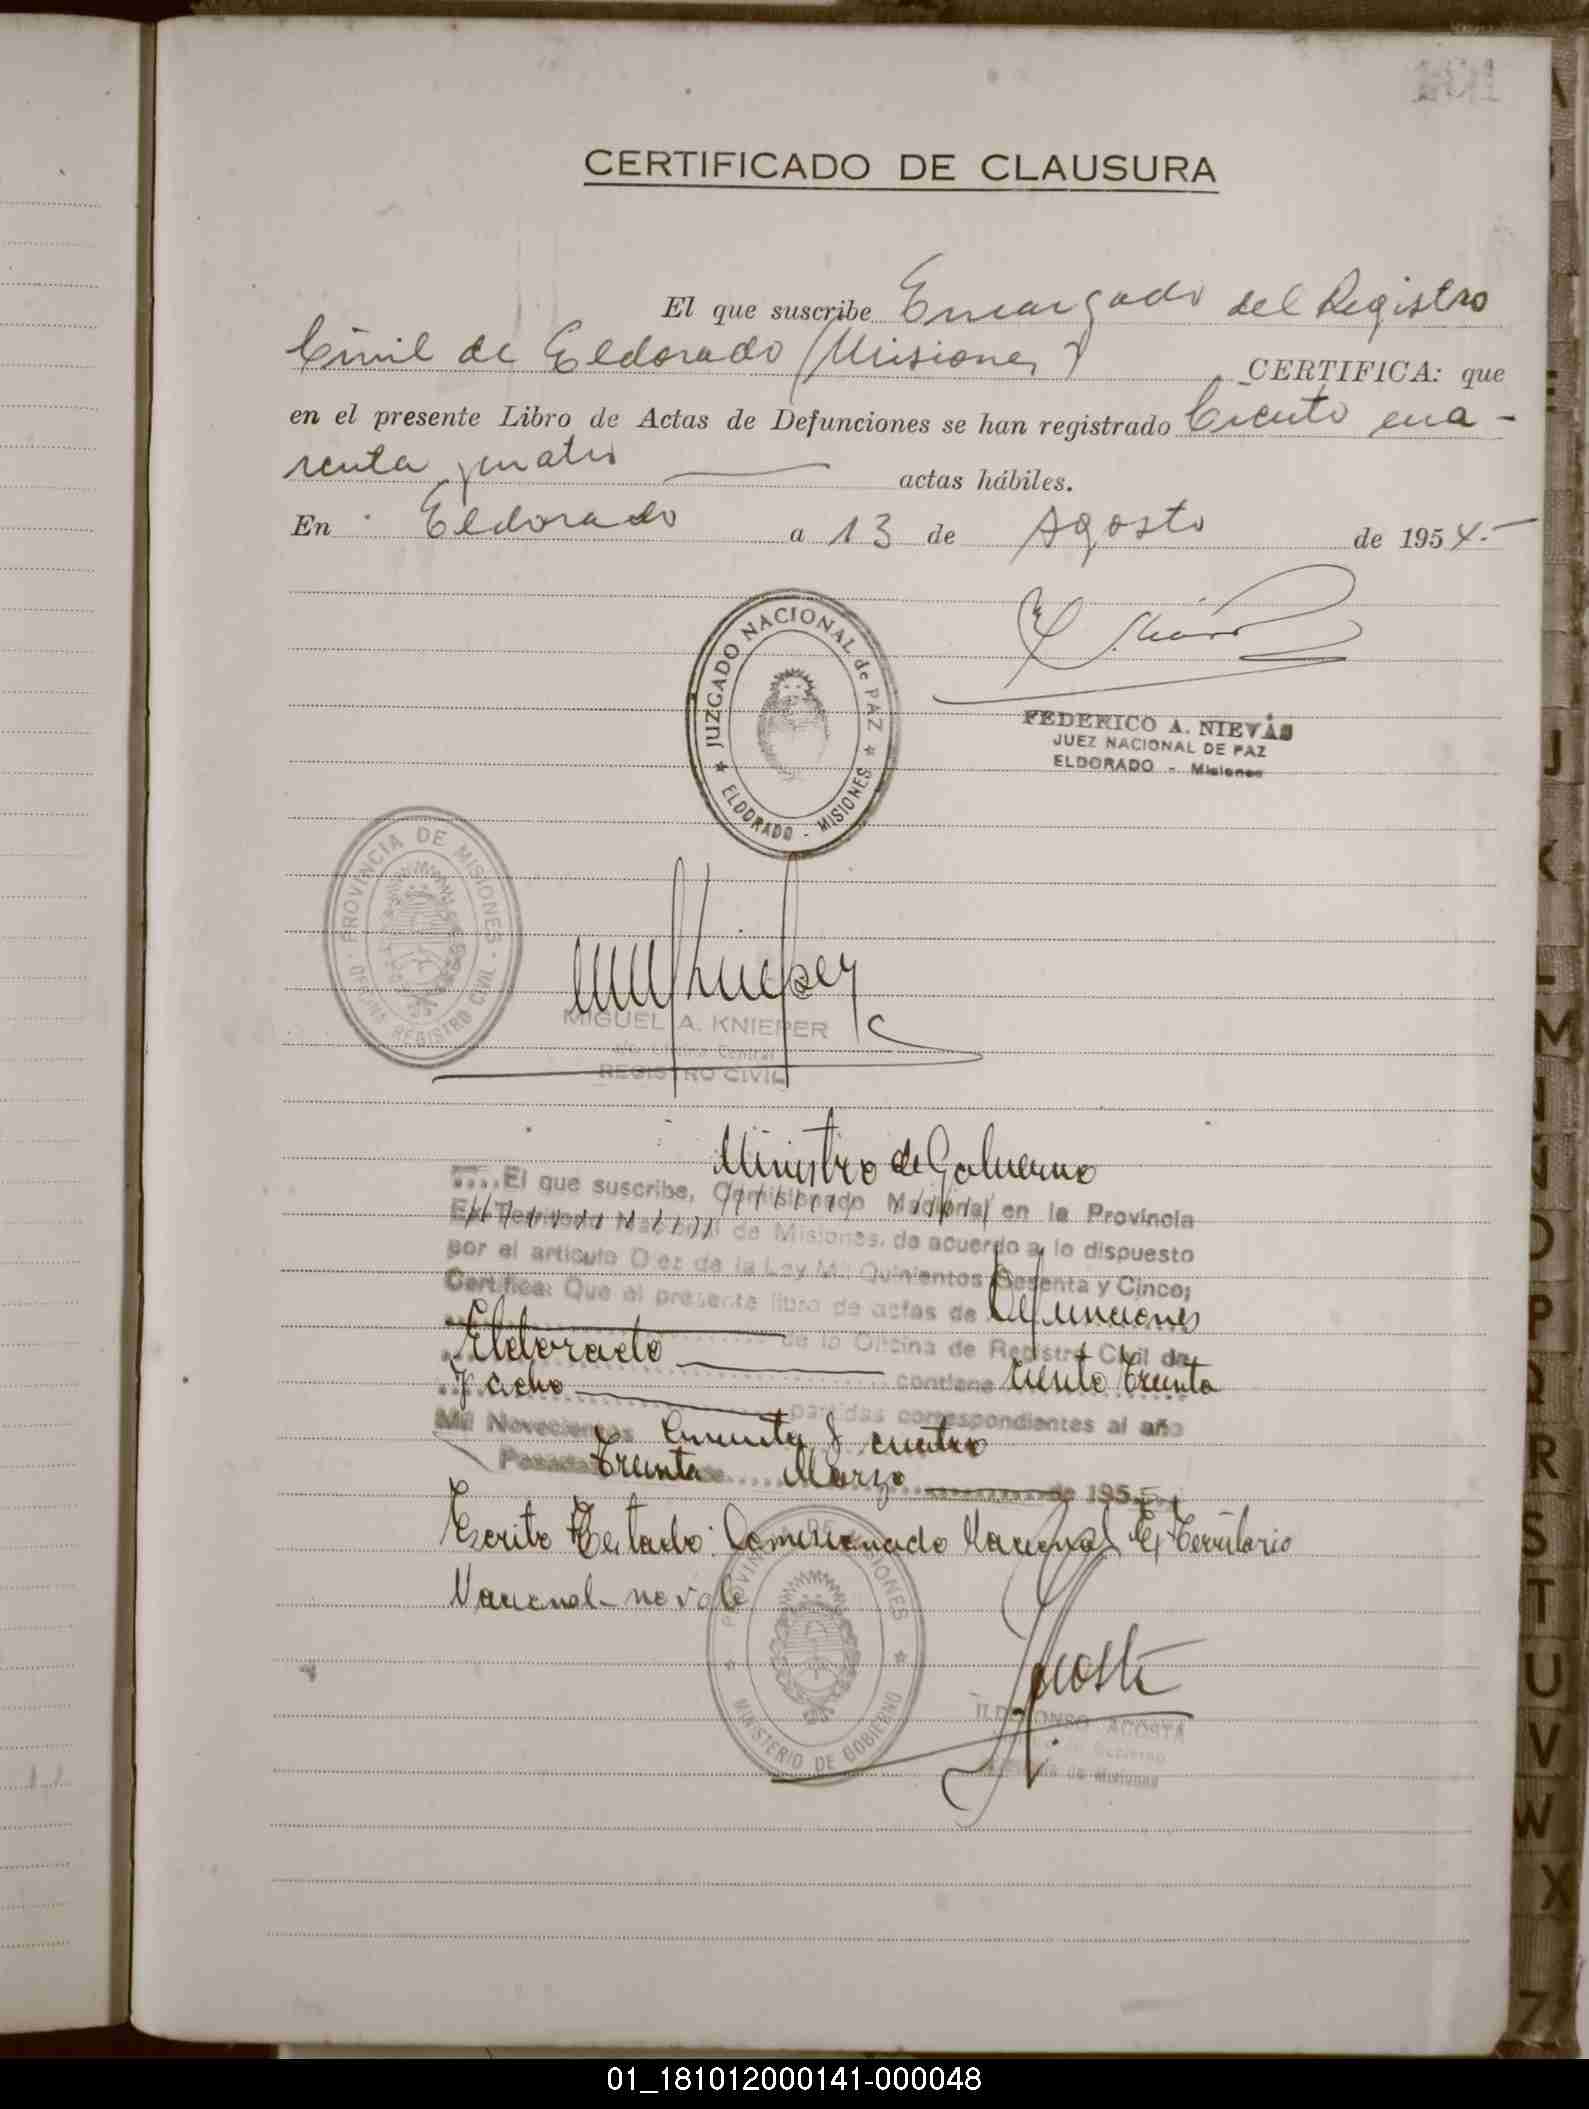 CERTIFICADO DE CLAUSURA
El que suscribe Encargado del Registro
Civil de Eldorado (Misiones) CERTIFICA: que
en el presente Libro de Actas de Defunciones se han registrado Ciento cua-
renta y cuatro actas hábiles.
En Eldorado a 13 de Agosto de 1954.-
JUZGADO NACIONAL de PAZ
ELDORADO - MISIONES
FEDERICO A. NIEVAS
JUEZ NACIONAL DE PAZ
ELDORADO - Misiones
PROVINCIA DE MISIONES
OFICINA REGISTRO CIVIL
MKnieper
MIGUEL A. KNIEPER
Central
REGISTRO CIVIL
Ministro de Gobierno
....El que suscribe, Comisionado Nacional en la Provincia
Ex-Territorio Nacional de Misiones, de acuerdo a lo dispuesto
por el artículo Diez de la Ley Mil Quinientos Sesenta y Cinco;
Certifica: Que el presente libro de actas de Defunciones
Eldorado de la Oficina de Registro Civil de
y ocho contiene ciento treinta
partidas correspondientes al año
Mil Novecientos Cincuenta y cuatro
Posadas treinta de Marzo de 1955
Escrito Testado: Comisionado Nacional Ex-Territorio
Nacional - no vale
PROVINCIA DE MISIONES
MINISTERIO DE GOBIERNO
Acosta
ILDEFONSO ACOSTA
Gobierno
de Misiones
J
K
L
M
N
O
P
Q
R
S
T
U
V
W
X
Z
01_181012000141-000048